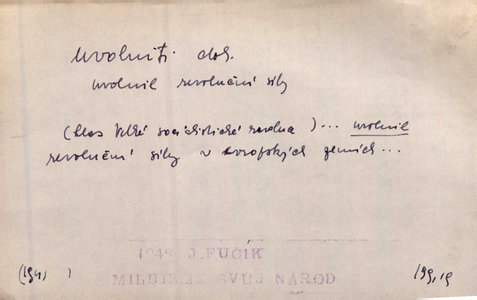 uvolniti dok.
uvolnil revoluční síly
(hlas Velké socialistické revoluce) ... uvolnil
revoluční síly v evropských zemích ...
1948 J. FUČÍK
(1941 )
MILUJEME SVŮJ NÁROD
199,19